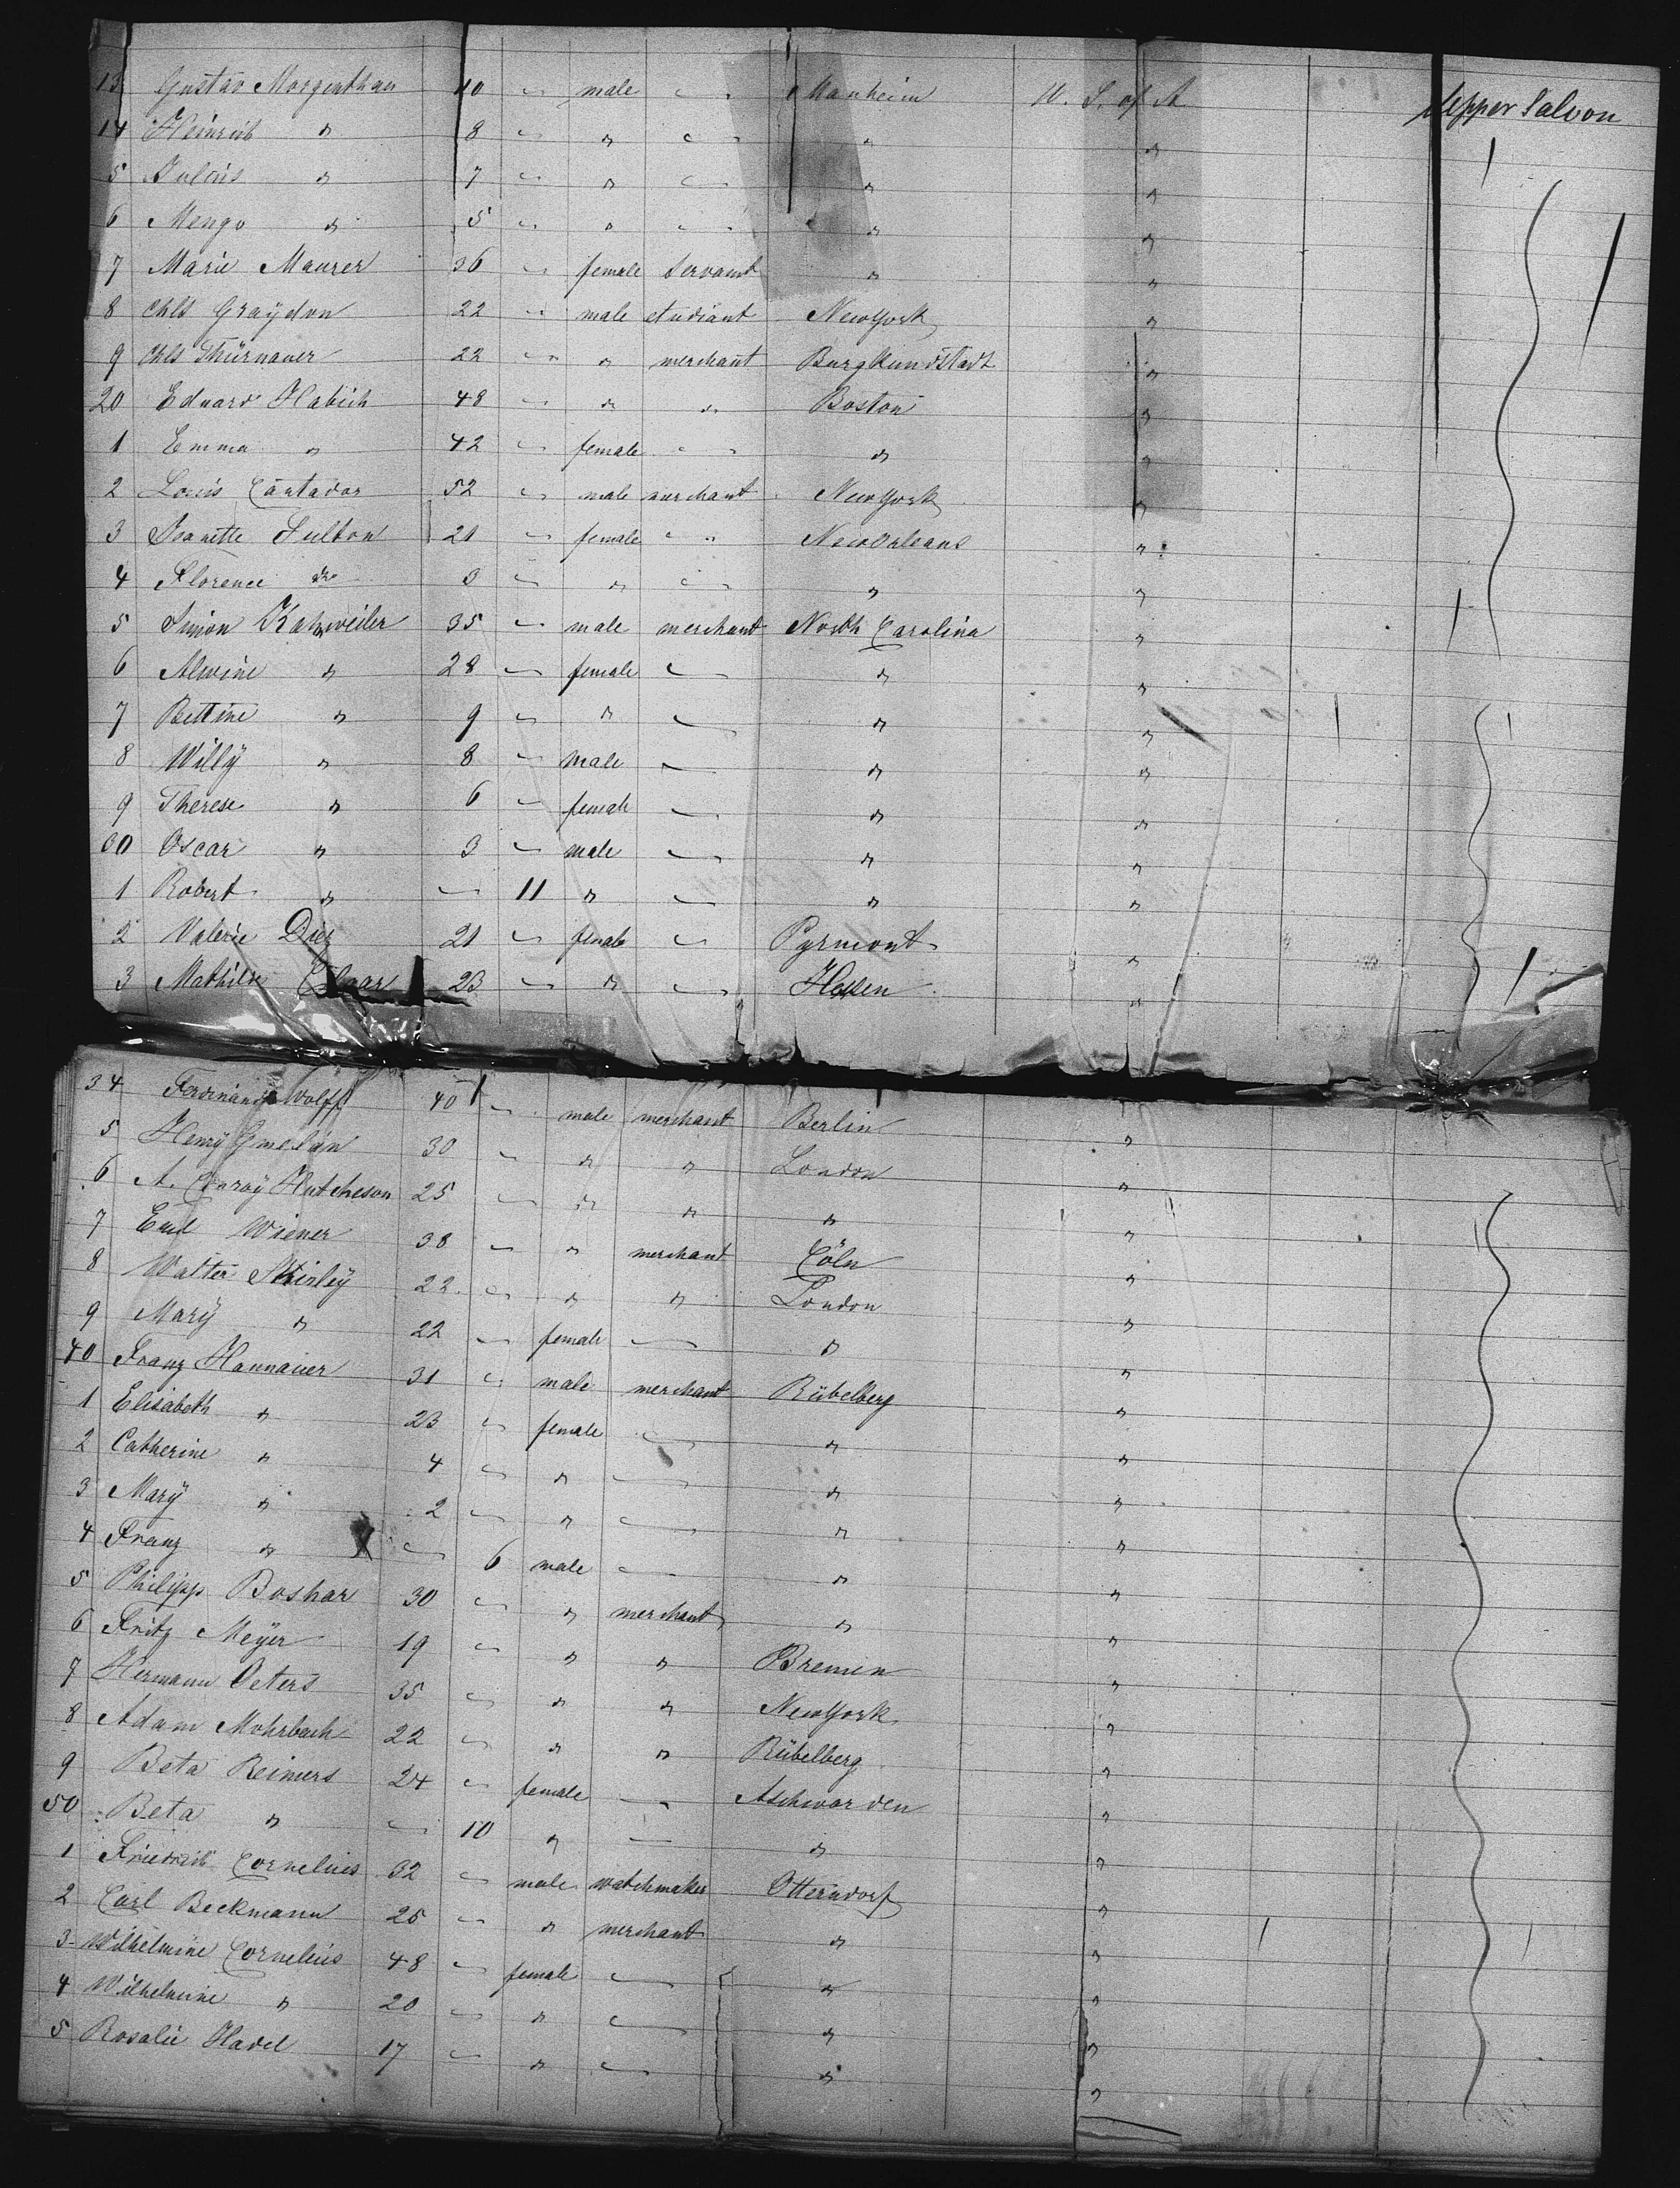 13 Gustav Morgenthau 10 " male " Manheim U. S. of A Upper Saloon
14 Heinrich " 8 " " " " "
5 Julius " 7 " " " " "
6 Mengo " 5 " " " " "
7 Marie Maurer 36 " female Servant " "
8 Chls Graydon 22 " male etudiant New York "
9 Chls Thürnauer 22 " " merchant Burgkundstadt "
20 Eduard Habich 48 " " " Boston "
1 Emma " 42 " female " " "
2 Louis Cantador 52 " male merchant New York "
3 Jeanette Fulton 21 " female " New Orleans "
4 Florence do 3 " " " " "
5 Simon Kahnweiler 35 " male merchant North Carolina "
6 Alwine " 28 " female " " "
7 Bettine " 9 " " " " "
8 Willÿ " 8 " male " " "
9 Therese " 6 " female " " "
30 Oscar " 3 " male " " "
1 Robert " " 11 " " " "
2 Valerie Diez 21 " female " Pyrmont "
3 Mathilde 23 " " " Hessen "
34 Ferdinand Wolff 40 " male merchant Berlin "
5 Henrÿ Gmelin 30 " " " London "
6 A. Conroÿ Hutcheson 25 " " " " "
7 Emil Wiener 38 " " merchant Cöln "
8 Walter Shirleÿ 22 " " " London "
9 Marÿ " 22 " female " " "
40 Franz Hannauer 31 " male merchant Rübelberg "
1 Elisabeth " 23 " female " " "
2 Catherine " 4 " " " " "
3 Marÿ " 2 " " " " "
4 Franz " " 6 male " " "
5 Philipp Boshar 30 " " merchant " "
6 Fritz Meÿer 19 " " " Bremen "
7 Hermann Oeters 35 " " " New York "
8 Adam Mohrbach 22 " " " Rübelberg "
9 Beta Reimers 24 " female " Aschwarden "
50 Beta " " 10 " " " "
1 Friedrich Cornelius 32 " male watchmaker Otterndorf "
2 Carl Beckmann 25 " " merchant " "
3 Wilhelmine Cornelius 48 " female " " "
4 Wilhelmine " 20 " " " " "
5 Rosalie Hadel 17 " " " " "